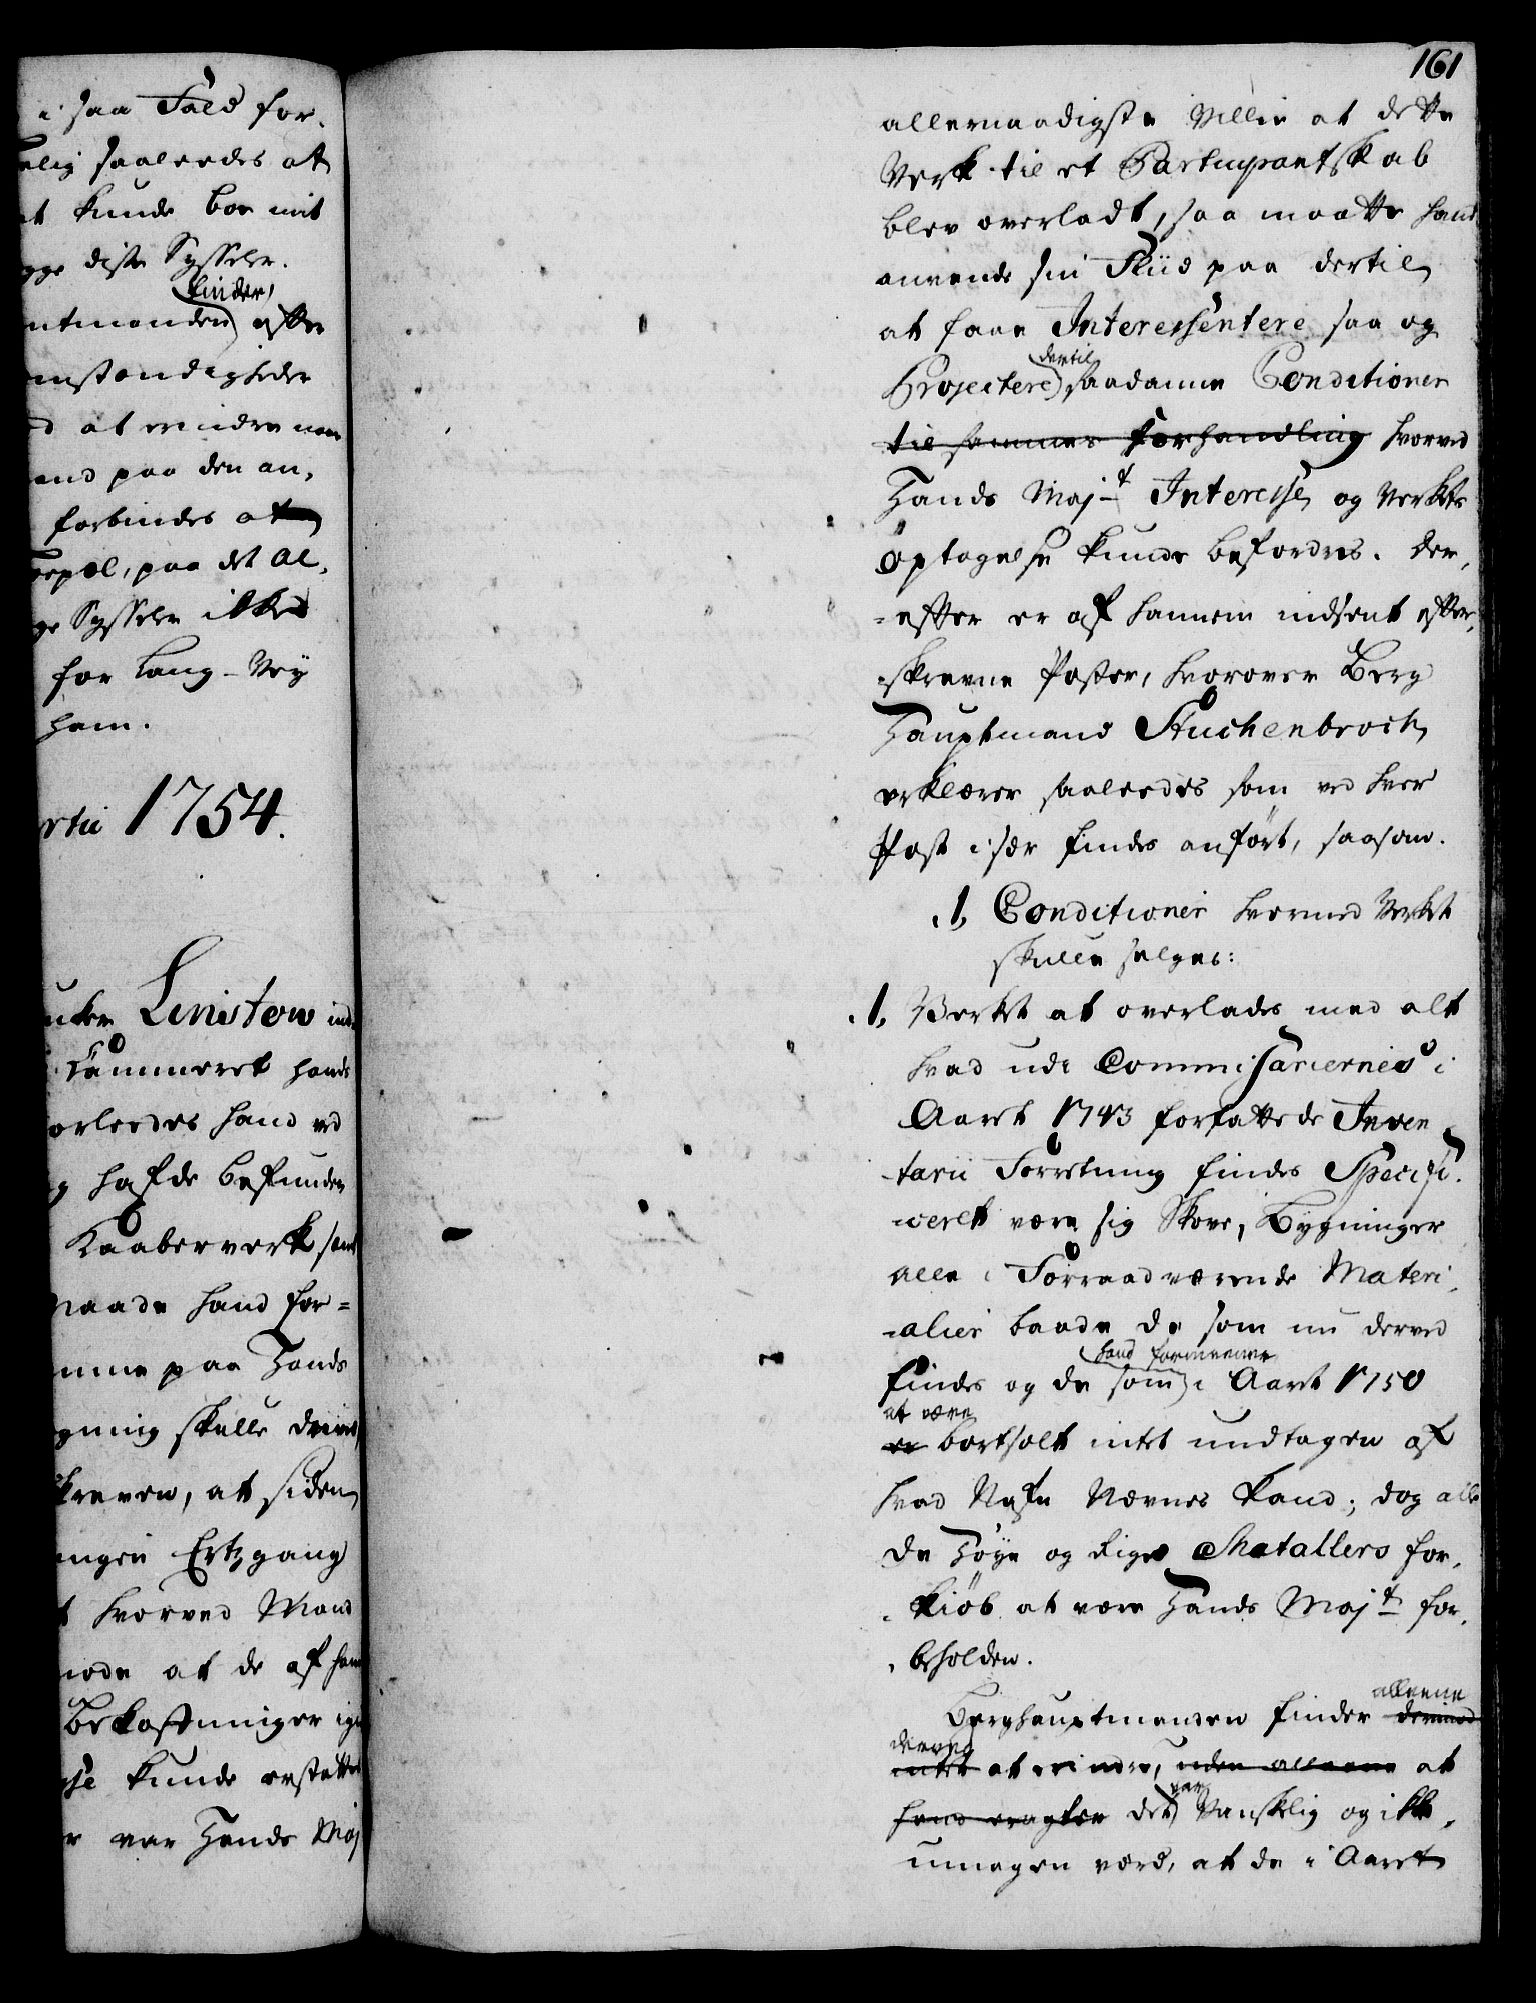 i saa Fald for-
elig saaleedes at
at kunde boe mit
gge disse Sysseler.
finder
ntmanden efter
mstændigheder
d at erindre naar
and paa den an-
forbindes at
paa det al-
ge Sysseler ikke
for lang Vey
ham.
rtii 1754.
Linstow ind-
Cammeret hands
orleedes hand ved
g hafde befunden
Kaaberverk samt
maade hand for=
mme paa Hands
gning skulle drives,
skreven, at siden
ingen Ertzgang
t hvorved Mand
mode at de af ham
Bekostninger igien
se kunde erstattes
r var Hands Maj
161
allernaadigste Villie at dette
Verk til et Participantskab
blev overladt, saa maatte hand
anvende sin Fliid paa dertil
at faae Interessentere saa og
dertil
Projectere saadanne Conditioner
til sammes Forhandling hvorved
Hands Maj:t Interesse og Verkets
optagelse kunde befordres. Der-
=efter er af hannem indsent efter-
=skrevne Poster, hvorover Berg
Hauptmand Stuckenbrock
erklærer saaleedes som ved hver
Post i sær findes anført, saasom.
1, Conditioner hvormed Verket
skulle selges:
1, Verket at overlades med alt
hvad udi Commissariernes i
Aaret 1743 forfattede Inven
-tarii Forretning findes Specifi-
-ceret være sig Skove, Bygninger
alle i Forraad værende Materi-
-alier baade de som nu derved
hand formeener
findes og de som i Aaret 1750
at være
er bortsolt intet undtagen af
hvad Nafn Nævnes kand; dog alle
de Høye og Rige Metallers for-
-kiøb at være Hands Maj:t for-
-beholden.
alleene
Berghauptmanden finder derimod
derved
intet at erindre, uden alleene at
var
hand eragter det Vanskelig og ikke
umagen værd, at de i Aaret